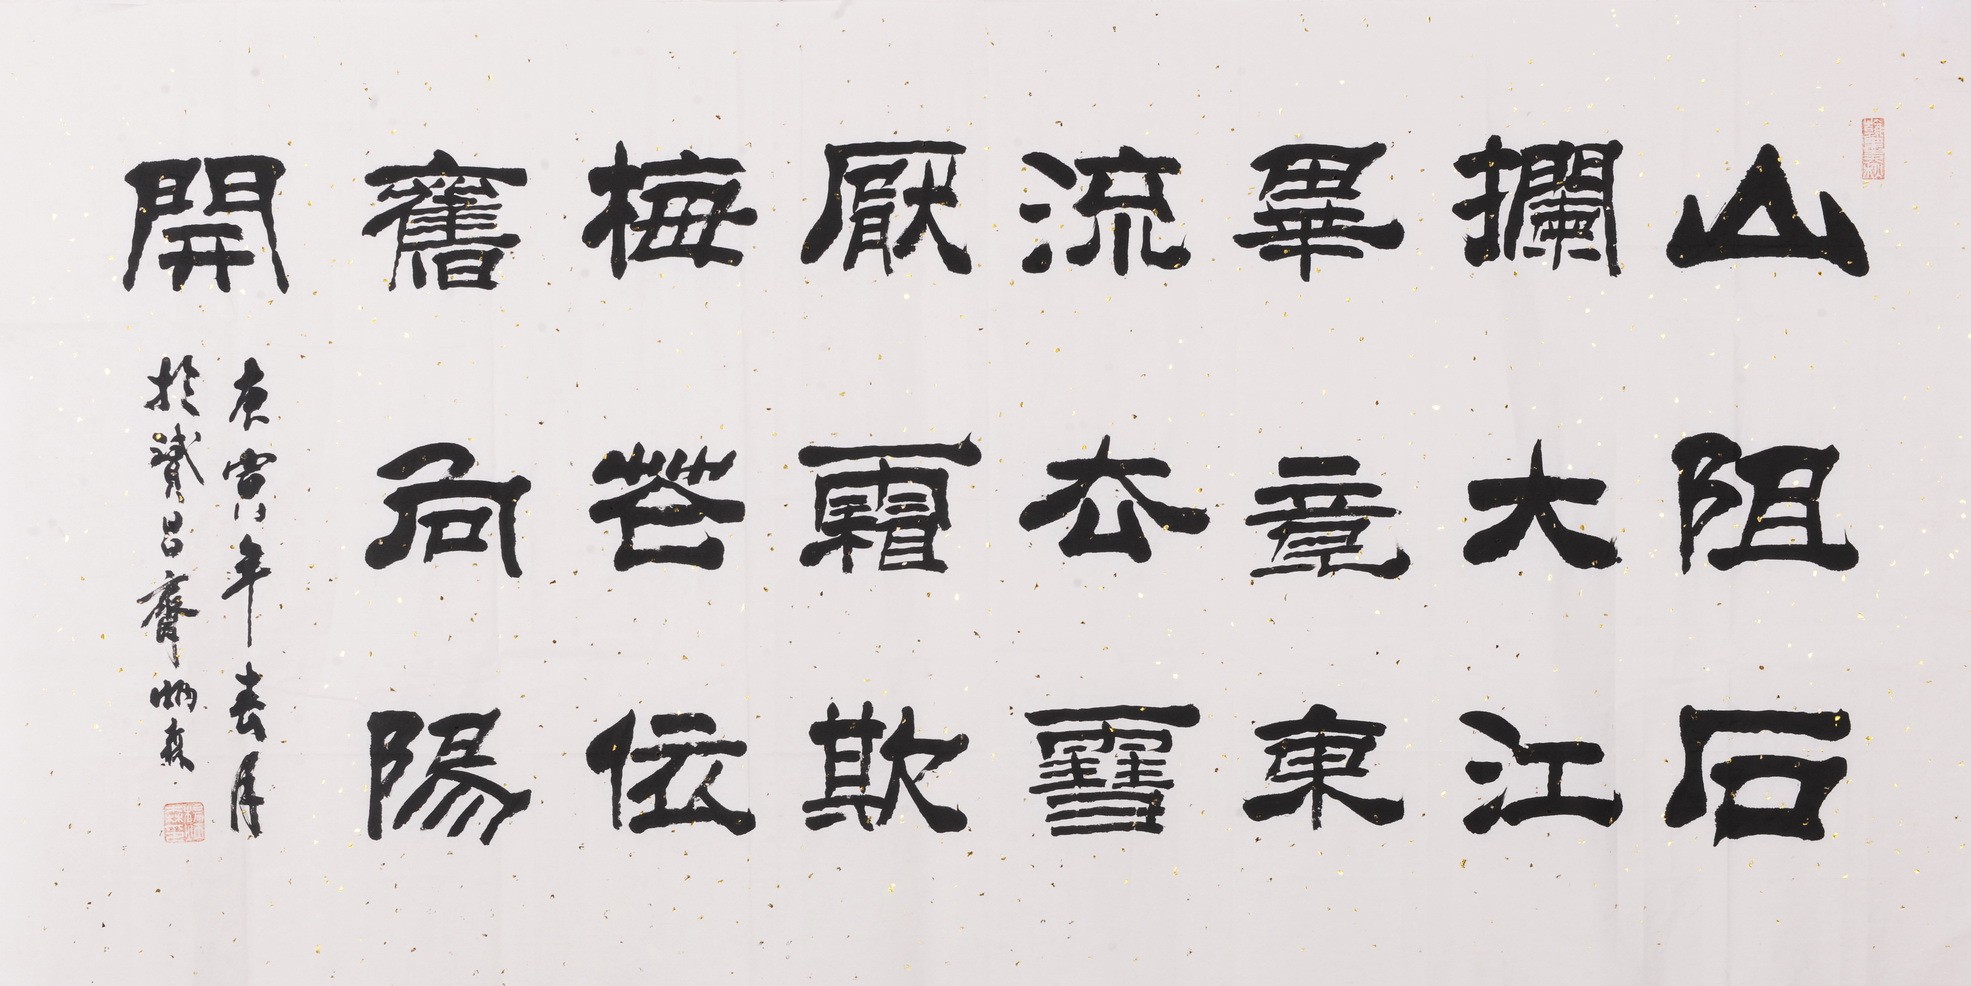 山阻石
攔大江
畢竟東
流去雪
厭霜欺
梅花依
舊向陽
開
庚寅年春月
於
昌齋炳森